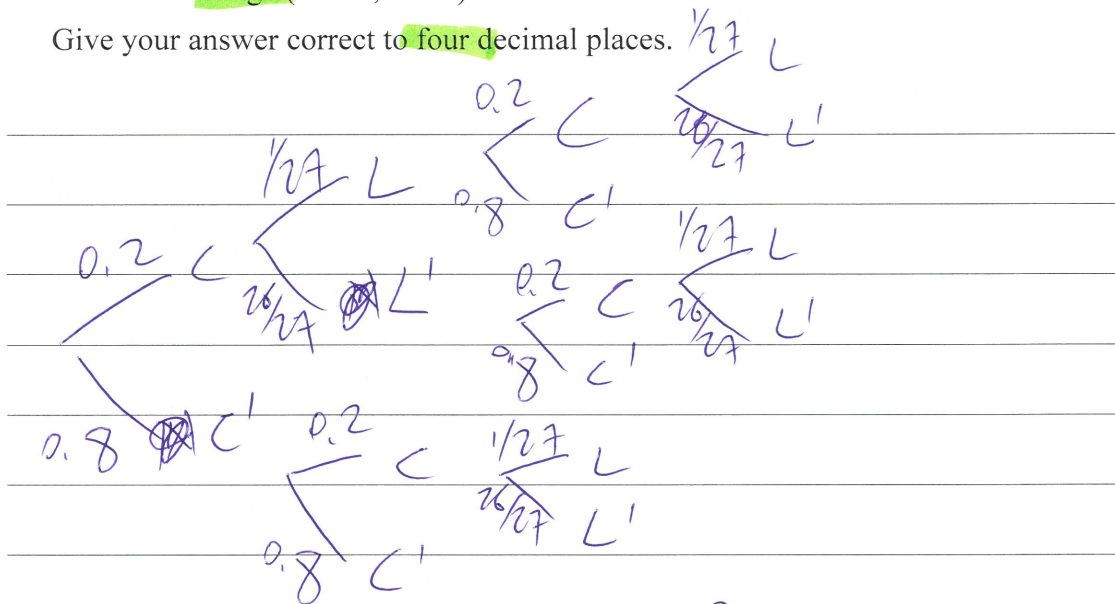 Give your answer correct to four decimal places.
1/27 L
0.2 C
26/27 L'
1/27 L
0.8 C'
1/27 L
0.2 C
0.2 C
26/27 L'
26/27 L'
0.8 C'
0.8 C'
0.2 C
1/27 L
26/27 L'
0.8 C'